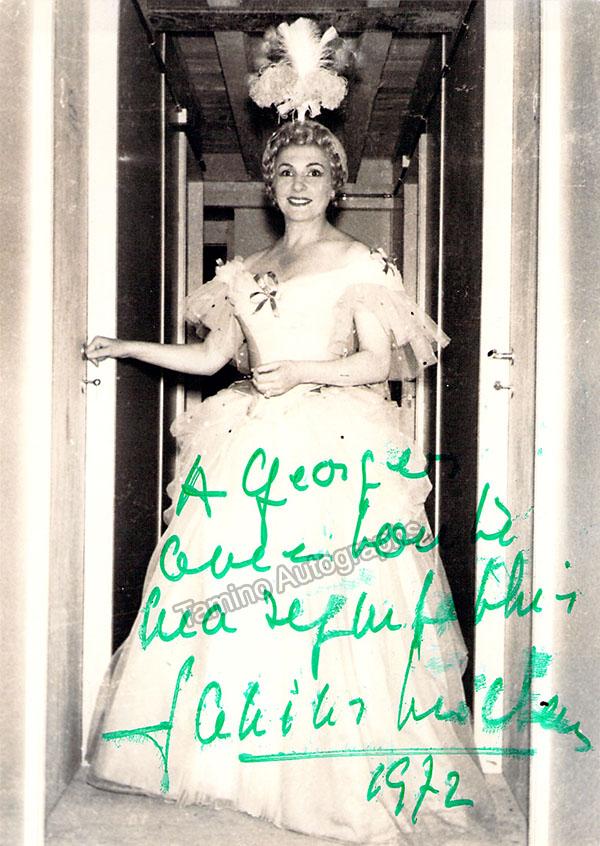 A Georges
avec toute
Tamino Autographs
ma sympathie
Janine Micheau
1972